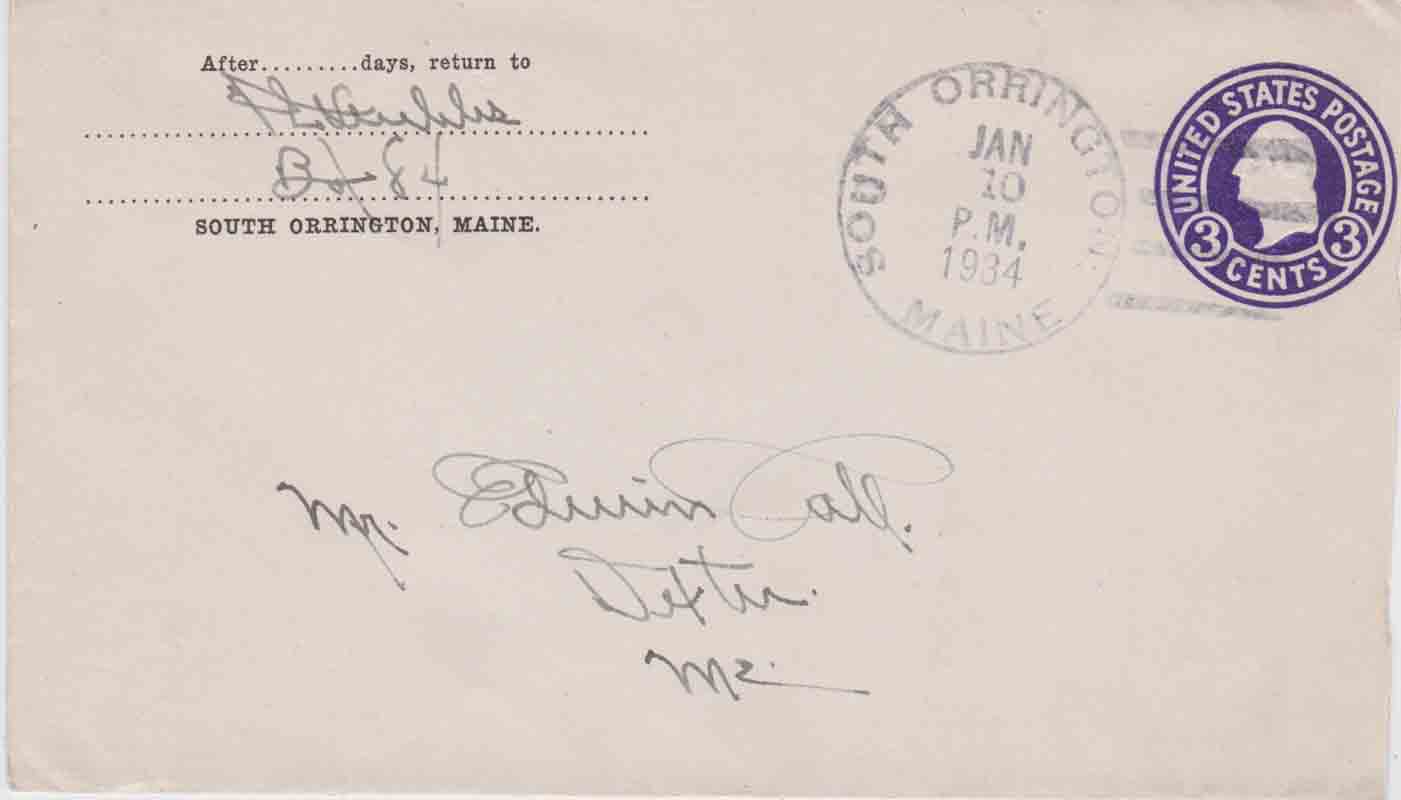 After.........days, return to
Box 84
SOUTH ORRINGTON, MAINE.
SOUTH ORRINGTON.
JAN
10
P.M.
1934
MAINE
UNITED STATES POSTAGE
3 3
CENTS
Mr. Edwin Call.
Dexter.
Me.